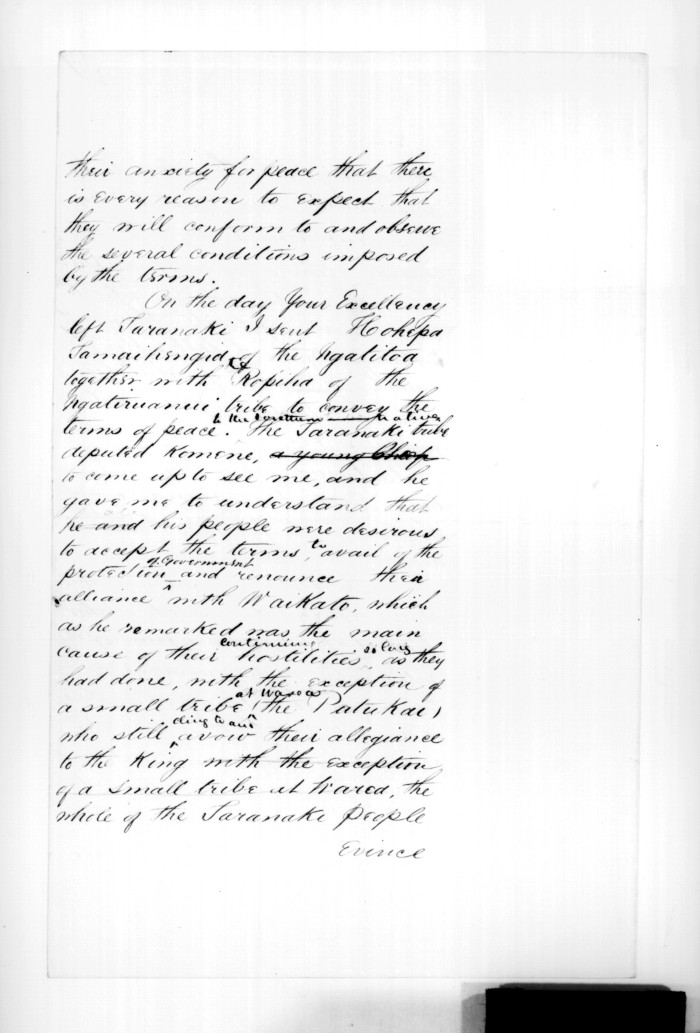 their anxiety for peace that there
is every reason to expect that
they will conform to and observe
the several conditions imposed
by the terms.
On the day Your Excellency
left Taranaki I sent Hohepa
Tamaihengia of the Ngatitoa
together with Ropiha of the
Ngatiruanui tribe to convey the
to the Southern natives
terms of peace. The Taranaki tribe
deputed Komene, a young Chief
to come up to see me, and he
gave me to understand that
he and his people were desirous
to accept the terms, to avail of the
of Government
protection and renounce their
alliance with Waikato, which
as he remarked was the main
continuing so long
cause of their hostilities, as they
had done, with the exception of
at Warea
a small tribe (the Patukai)
cling to and
who still avow their allegiance
to the King with the exception
of a small tribe at Warea, the
whole of the Taranaki People
Evince